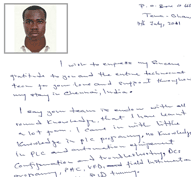 P. O. Box N 
Tema - Ghana
July, 2021
I wish to express my sincere
gratitude to you and the entire technical
team for your love and support throughout
my stay in Chennai, India.
I say your team is awesome with all
round knowledge, that I have learnt
a lot from. I came in with little
knowledge in PLC programing, no knowledge
in PLC and automation equipment
Configuration and troubleshooting, DCC
programing, PAC, VFD, and field Instrument
and PID tuning.